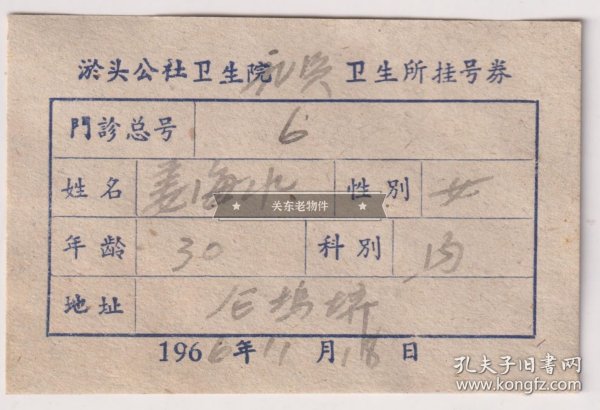 淤头公社卫生院 永兴 卫生所挂号券
門診总号 6
姓名 姜海水 性别 女
★ 关东老物件 ★
年龄 30 科别 内
地址
1966年11月18日
孔夫子旧书网
www.kongfz.com